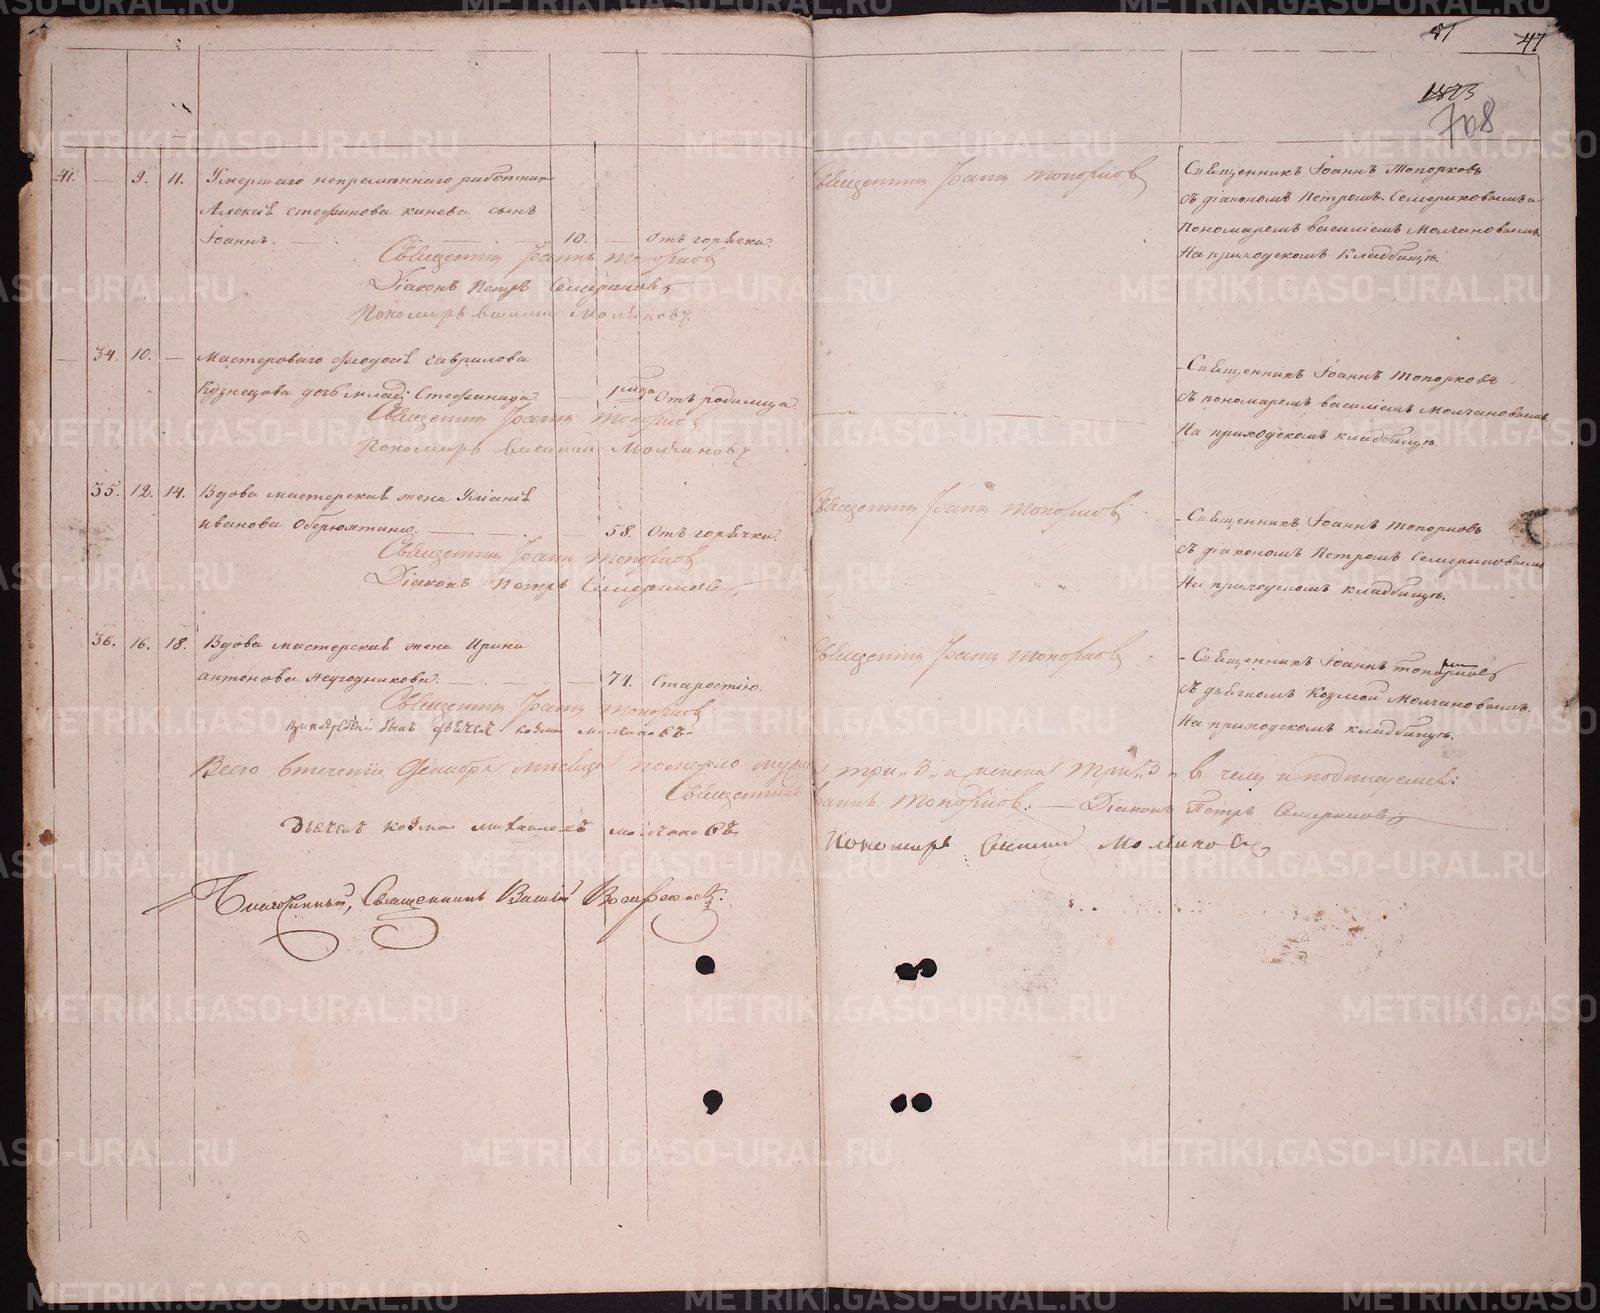 47
708
41. — 9. 11. Умершаго непремѣннаго работника
Алексѣя Стефанова Кинева сынъ
Іоаннъ. — 10. — Отъ горѣчки.
Священникъ Іоаннъ Топорковъ
Діаконъ Петръ Семерниковъ
Пономарь Василий Молчановъ
Священникъ Іоаннъ Топорковъ
Священникъ Іоаннъ Топорковъ
съ діакономъ Петромъ Семериковымъ и
Пономаремъ Василіемъ Молчановымъ.
На приходскомъ кладбищѣ.
— 34. 10. — Мастероваго Феодосѣя Гаврилова
Кузнецова дочь млад. Стефанида. — 1 мца Отъ родимца.
Священникъ Іоаннъ Топорковъ
Пономарь Василий Молчановъ
Священникъ Іоаннъ Топорковъ
съ пономаремъ Василіемъ Молчановымъ
На приходскомъ кладбищѣ.
35. 12. 14. Вдова мастерская жена Уліанія
Иванова Оберюхтина. — 58. Отъ горѣчки.
Священникъ Іоаннъ Топорковъ
Діаконъ Петръ Семерниковъ
Священникъ Іоаннъ Топорковъ
Священникъ Іоаннъ Топорковъ
съ діакономъ Петромъ Семериковымъ
На приходскомъ кладбищѣ.
36. 16. 18. Вдова мастерская жена Ирина
Антонова Негодникова. — 74. Старостію.
Священникъ Іоаннъ Топорковъ
при погребении былъ дьячекъ козма молчановъ
Священникъ Іоаннъ Топорковъ
Священникъ Іоаннъ Топорковъ
съ дьячкомъ Козмою Молчановымъ.
На приходскомъ кладбищѣ.
Всего втеченіи Декабря мѣсяца померло муж. три „3„ и женска три „3„ в чемъ и подписуемся:
Священникъ Іоаннъ Топорковъ. — Діаконъ Петръ Семерниковъ
дьячекъ козма михаиловъ молчановъ
Пономарь Василий Молчановъ
Благочинный, Священникъ Василій
METRIKI.GASO-URAL.RU